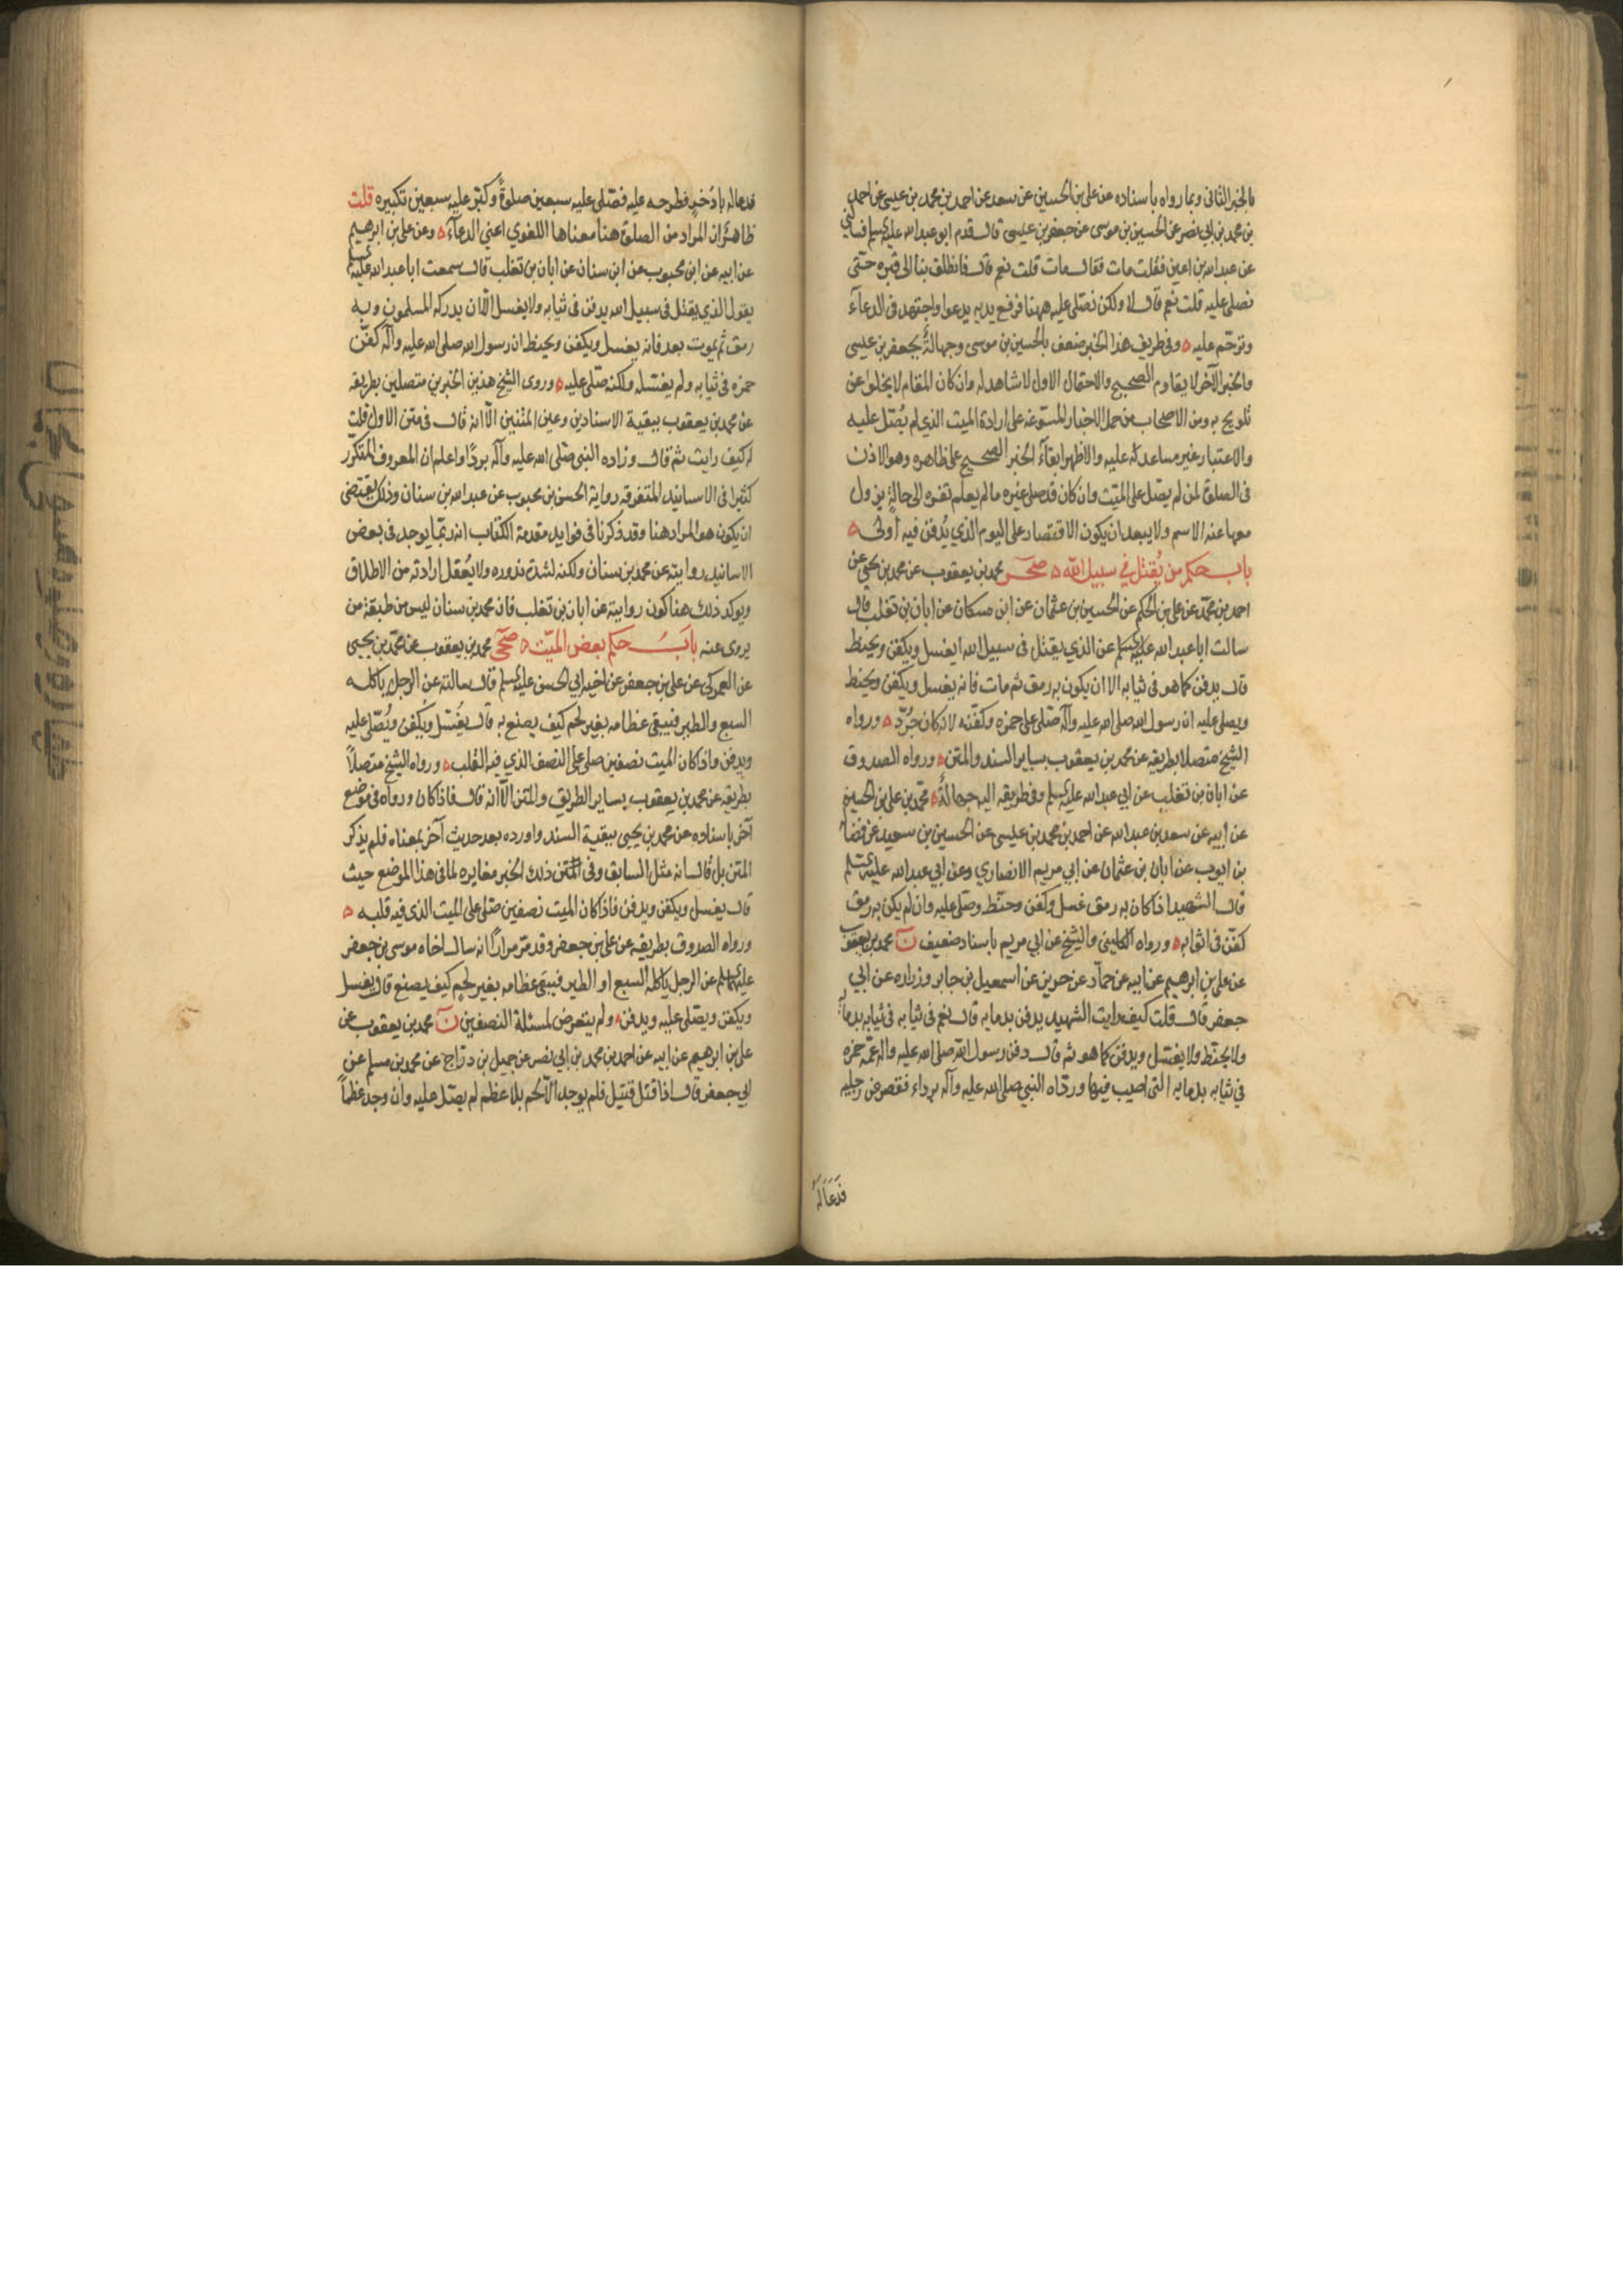 بالخبر الثاني وبما رواه باسناده عن علي بن الحسين عن سعد عن احمد بن محمد بن عيسى عن احمد
بن محمد بن ابي نصر عن الحسين بن موسى عن جعفر بن عيسى قال قدم ابو عبد الله عليه السلم فسالني
عن عبد الله بن اعين فقلت مات فقال مات قلت نعم قال فانطلق بنا الى قبره حتى
نصلي عليه قلت نعم قال لا ولكن نصلي عليه ههنا فرفع يديه يدعوا واجتهد في الدعاء
وترحم عليه ه وفي طريق هذا الخبر ضعف بالحسين بن موسى وجهالة بجعفر بن عيسى
والخبر الآخر لا يقاوم الصحيح والاحتمال الاول لا شاهد له وان كان المقام لا يخلوا عن
تلويح به ومن الاصحاب من حمل الاخبار المسوغة على ارادة الميت الذي لم يُصَل عليه
والاعتبار غير مساعد له عليه والاظهر ابقاء الخبر الصحيح على ظاهره وهو الاذن
في الصلوة لمن لم يصل على الميت وان كان قد صلى غيره ما لم يعلم تغيره الى حالة يزول
معها عنه الاسم ولا يبعد ان يكون الاقتصار على اليوم الذي يُدفن فيه أولى ه
باب حكم من يُقتل في سبيل الله ه صحر محمد بن يعقوب عن محمد بن يحيى عن
احمد بن محمد عن علي بن الحكم عن الحسين بن عثمان عن ابن مسكان عن ابان بن تغلب قال
سالت ابا عبد الله عليه السلم عن الذي يقتل في سبيل الله ايغسل ويكفن ويحنط
قال يدفن كما هو في ثيابه الا ان يكون به رمق ثم مات فانه يغسل ويكفن ويحنط
ويصلى عليه ان رسول الله صلى الله عليه وآله صلى على حمزه وكفنه لانه كان جُرّد ه ورواه
الشيخ متصلا بطريقه عن محمد بن يعقوب بساير السند والمتن ه ورواه الصدوق
عن ابان بن تغلب عن ابي عبد الله عليه السلم وفي طريقه اليه جهالة ه محمد بن علي بن الحسين
عن ابيه عن سعد بن عبد الله عن احمد بن محمد بن عيسى عن الحسين بن سعيد عن فضالة
بن ايوب عن ابان بن عثمان عن ابي مريم الانصاري وعن ابي عبد الله عليه السلم
قال الشهيد اذا كان به رمق غسل وكفن وحنط وصلي عليه وان لم يكن به رمق
كفن في اثوابه ه ورواه الكليني والشيخ عن ابي مريم باسناد ضعيف ن محمد بن يعقوب
عن علي بن ابرهيم عن ابيه عن حماد عن حريز عن اسمعيل بن جابر وزراره عن ابي
جعفر قال قلت كيف رايت الشهيد يدفن بدمايه قال نعم في ثيابه في ثيابه بدمائه
ولا يحنط ولا يغسل ويدفن كما هو ثم قال دفن رسول الله صلى الله عليه واله عمه حمزه
في ثيابه بدمايه التي اصيب فيها وردّاه النبي صلى الله عليه وآله برداء فقصر عن رجليه
فَدَعَا لَهُ
فدعا له باذخر فطرحه عليه فصلى عليه سبعين صلوةً وكبر عليه سبعين تكبيره قلت
ظاهرٌ ان المراد من الصلوة هنا معناها اللغوي اعني الدعاء ه وعن علي بن ابرهيم
عن ابيه عن ابن محبوب عن ابن سنان عن ابان بن تغلب قال سمعت ابا عبد الله عليه السلم
يقول الذي يقتل في سبيل الله يدفن في ثيابه ولا يغسل الا ان يدركه المسلمون وبه
رمق ثم يموت بعد فانه يغسل ويكفن ويحنط ان رسول الله صلى الله عليه وآله كفن
حمزه في ثيابه ولم يغسله ولكنه صلى عليه ه وروى الشيخ هذين الخبرين متصلين بطريقه
عن محمد بن يعقوب ببقية الاسنادين وعين المتنين الا انه قال في متن الاول قلت
له كيف رايت ثم قال وزاده النبي صلى الله عليه وآله بردًا واعلم ان المعروف المتكرر
كثيرا في الاسانيد المتفرقه رواية الحسن بن محبوب عن عبد الله بن سنان وذلك يقتضي
ان يكون هو المراد هنا وقد ذكرنا في فوايد مقدمة الكتاب انه ربما يوجد في بعض
الاسانيد روايته عن محمد بن سنان ولكنه لشدة ندوره ولا يُعقل ارادته من الاطلاق
ويوكد ذلك هنا كون روايته عن ابان بن تغلب فان محمد بن سنان ليس من طبقة من
يروى عنه باب حكم بعض الميت ه صحى محمد بن يعقوب عن محمد بن يحيى
عن العمركي عن علي بن جعفر عن اخيه ابي الحسن عليه السلم قال سالته عن الرجل ياكله
السبع والطير فيبقى عظامه بغير لحم كيف يصنع به قال يغسل ويكفن ويُصلى عليه
ويدفن واذا كان الميت نصفين صلي على النصف الذي فيه القلب ه ورواه الشيخ متصلاً
بطريقه عن محمد بن يعقوب بساير الطريق والمتن الا انه قال فاذا كان ورواه في موضع
آخر باسناده عن محمد بن يحيى ببقية السند واورده بعد حديث آخر بمعناه فلم يذكر
المتن بل قال انه مثل السابق وفي المتن ذلك الخبر مغايره لما في هذا الموضع حيث
قال يغسل ويكفن ويدفن فاذا كان الميت نصفين صلى على الميت الذي فيه قلبه ه
ورواه الصدوق بطريقه عن علي بن جعفر وقد مر مرارًا انه سال اخاه موسى بن جعفر
عليهما السلم عن الرجل ياكله السبع او الطير فيبقى عظامه بغير لحم كيف يصنع قال يغسل
ويكفن ويصلى عليه ويدفن ه ولم يتعرض لمسئلة النصفين ن محمد بن يعقوب عن
علي بن ابرهيم عن ابيه عن احمد بن محمد بن ابي نصر عن جميل بن دراج عن محمد بن مسلم عن
ابي جعفر قال اذا قتل قتيل فلم يوجد الا لحم بلا عظم لم يصل عليه وان وجد عظماً